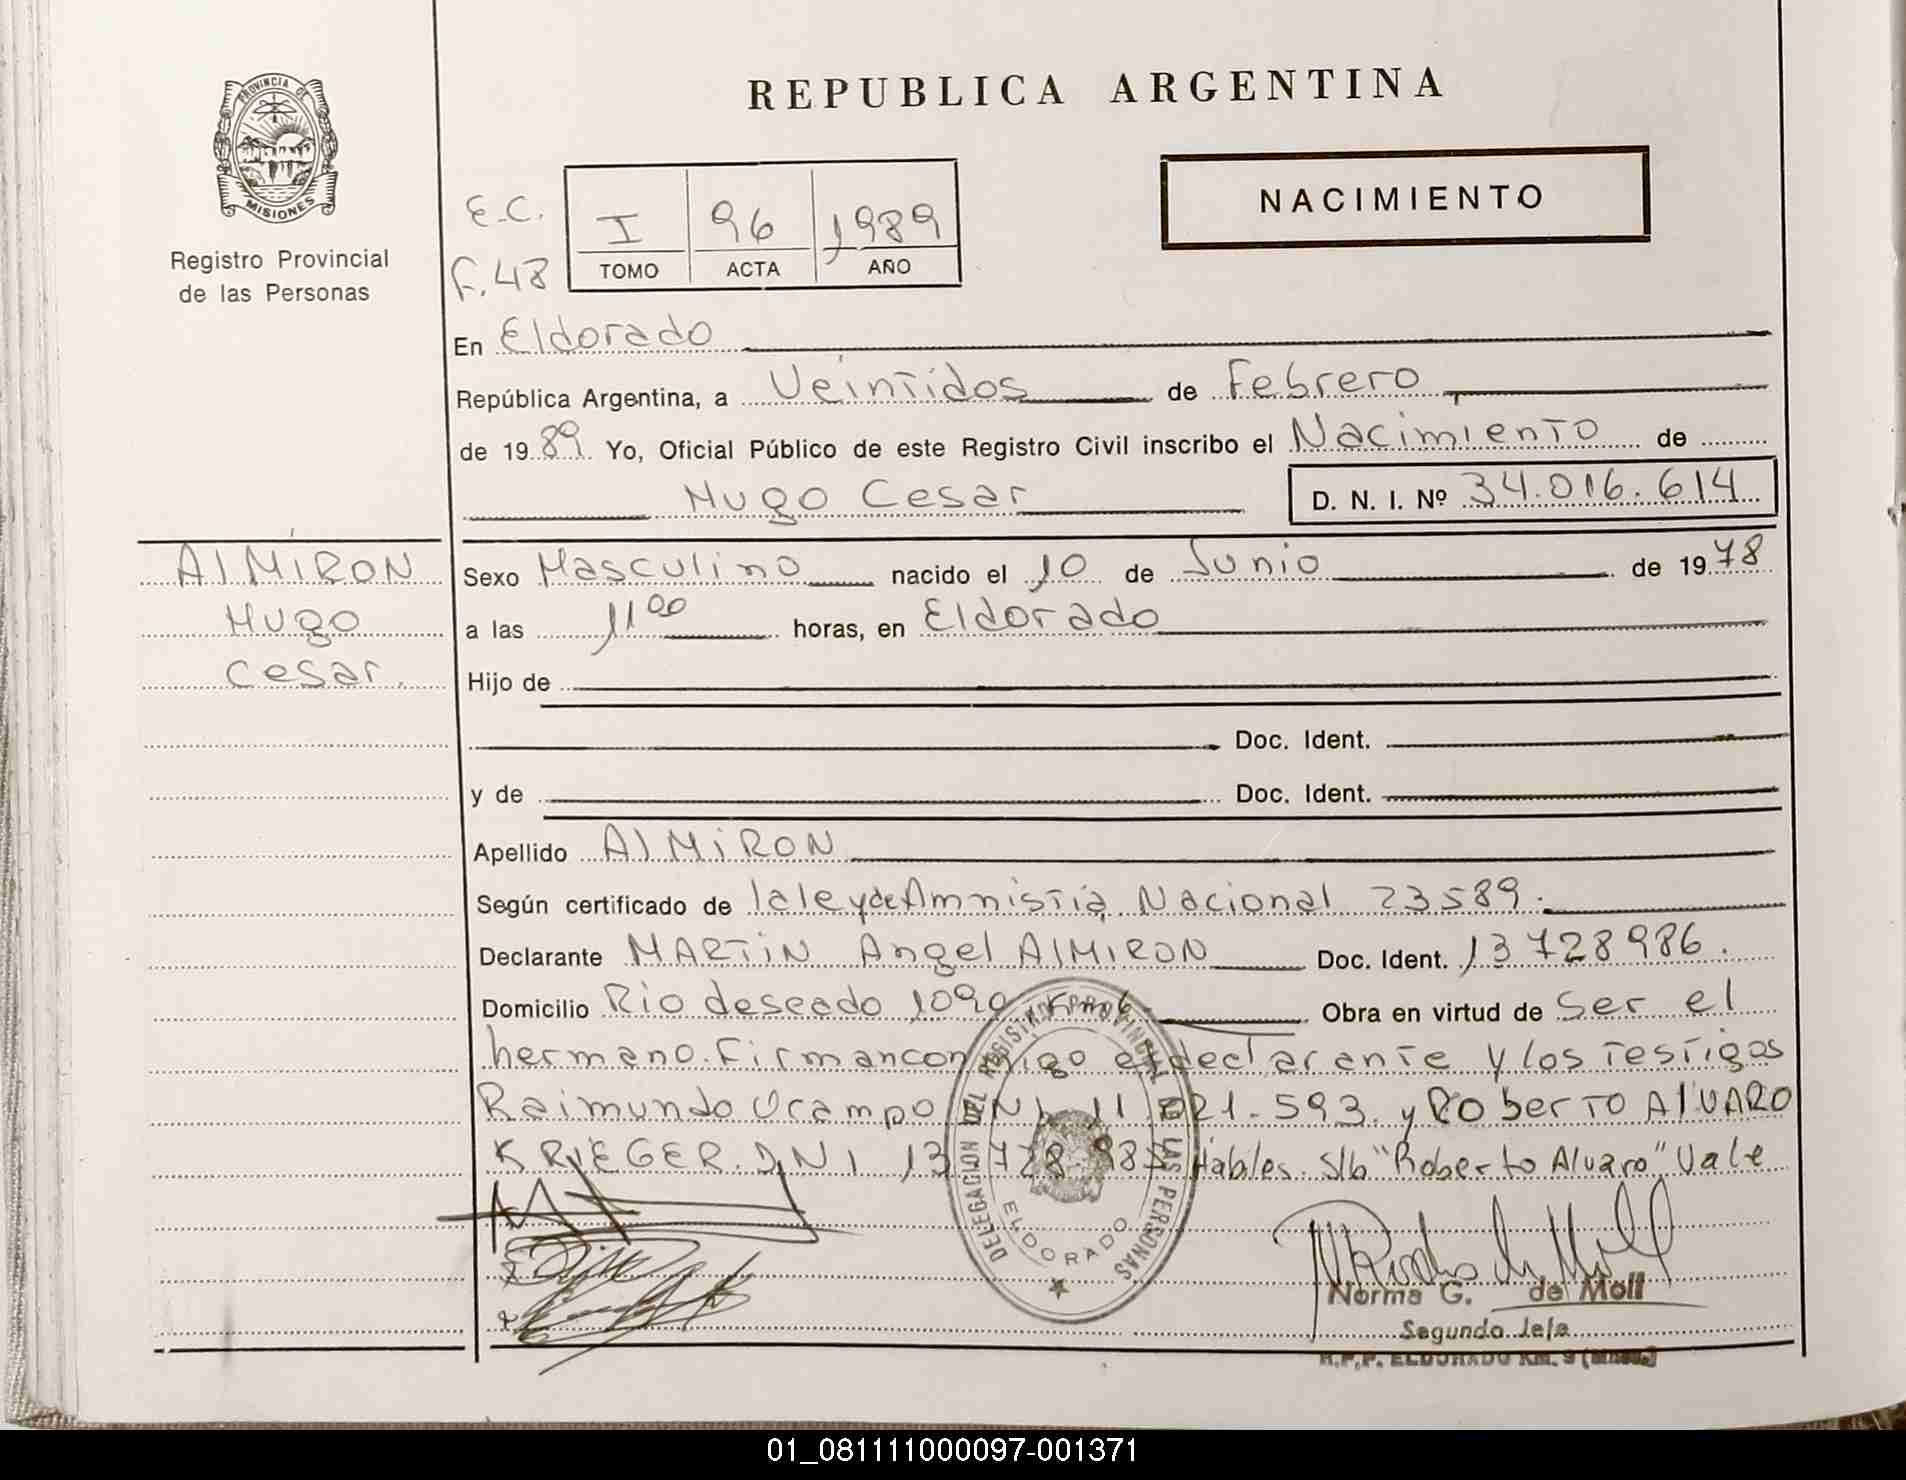 PROVINCIA DE
MISIONES
Registro Provincial
de las Personas
REPUBLICA ARGENTINA
NACIMIENTO
E.C.
F. 48
I 96 1989
TOMO ACTA AÑO
En Eldorado
República Argentina, a Veintidos de Febrero
de 1989. Yo, Oficial Público de este Registro Civil inscribo el Nacimiento de
Hugo Cesar D. N. I. Nº 34.016.614
ALMIRON
Hugo
Cesar.
Sexo Masculino nacido el 10 de Junio de 1978
a las 11 00 horas, en Eldorado
Hijo de
Doc. Ident.
y de Doc. Ident.
Apellido AlMiRON
Según certificado de la ley de Amnistia Nacional 23589.
Declarante MARTiN Angel AlMIRON Doc. Ident. 13728986.
Domicilio Rio deseado 1090 Km 6 Obra en virtud de Ser el
hermano. Firman conmigo el declarante y los testigos
Raimundo Ocampo DNI 11.021.593. y Roberto AlVARO
KRIEGER. DNI 13 728 Hables. S/b "Roberto Alvaro" Vale
DELEGACION DEL REGISTRO PROVINCIAL DE LAS PERSONAS
ELDORADO
Norma G. de Moll
Segundo Jefe
R.P.P. ELDORADO KM. 9 (Mnes.)
01_081111000097-001371